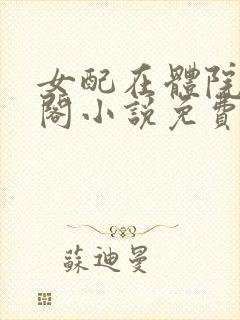 女配在體院
閣小説免費
蘇迪曼